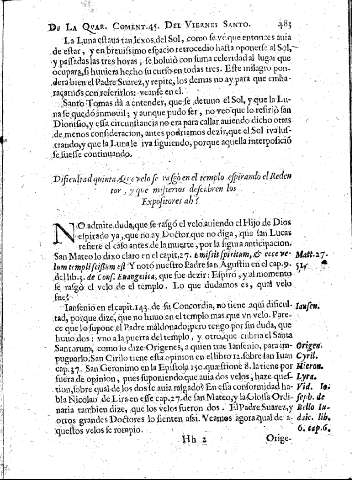 De La Qvar. Coment. 45. Del Viernes Santo. 483
La Luna estaua tan lexos del Sol, como se vè que entonces auia
de estar, y en breuissimo espacio retrocediò hasta oponerse al Sol,
y passadas las tres horas, se boluiò con suma celeridad al lugar que
ocupara, si huuiera hecho su curso en todas tres. Este milagro pon-
dera bien el Padre Suarez, y repite, los demas no ay para que emba-
raçarnos con referirlos: veanse en el.
Santo Tomàs dà à entender, que se detuuo el Sol, y que la Lu-
na se quedò inmouil; y aunque pudo ser, no veo que lo refiriò san
Dionisio, y essa circunstancia no era para callar auiendo dicho otras
de menos consideracion, antes podriamos dezir, que el Sol iva lus-
trando, y que la Luna le iva siguiendo, porque aquella interposiciò
se fuesse continuando.
Dificultad quinta. Que velo se rasgò en el templo espirando el Reden
tor, y que misterios descubren los
Expositores ahì?
NO admite duda, que se rasgò el velo auiendo el Hijo de Dios
espirado ya, que no ay Doctor que no diga, que san Lucas
refiere el caso antes de la muerte, por la figura anticipacion.
San Mateo lo dixo claro en el capit. 27. Emisit spiritum, & ecce ve- Matt. 27.
lum templi scissum est Y notò nuestro Padre San Agustin en el cap. 9. 51.
del lib. 3. de Cons. Euangelica, que fue dezir: Espirò, y al momento
se rasgò el velo de el templo. Lo que dudamos es, qual velo
fue?
Iansenio en el capit. 143. de su Concordia, no tiene aqui dificul- Iansen.
tad, porque dize, que no huuo en el templo mas que vn velo. Pare-
ce que lo supone el Padre maldonado; pero tengo por sin duda, que
huuo dos: vno a la puerta del templo, y otro, que cubria el Santa
Santorum, como lo dize Origenes, a quien trae Iansenio, para im- Origen.
pugnarlo. San Cirilo tiene esta opinion en el libro 12. sobre Ioan Cyril.
cap. 37. San Geronimo en la Epistola 150. question 8. la tiene por Hieron.
fuera de opinion, pues suponiendo que auia dos velos, haze ques- Lyra.
tion, sobre qual de los dos se auia rasgado? En essa conformidad ha- Vid. Io-
bla Nicolao de Lira en esse cap. 27. de san Mateo, y la Glossa Ordi- seph. de
naria tambien dize, que los velos fueron dos. El Padre Suarez, y Bello Iu-
otros grandes Doctores lo sienten assi. Veamos agora qual de a- daic. lib.
questos velos se rompiò. 6. cap. 6.
Hh 2 Orige-